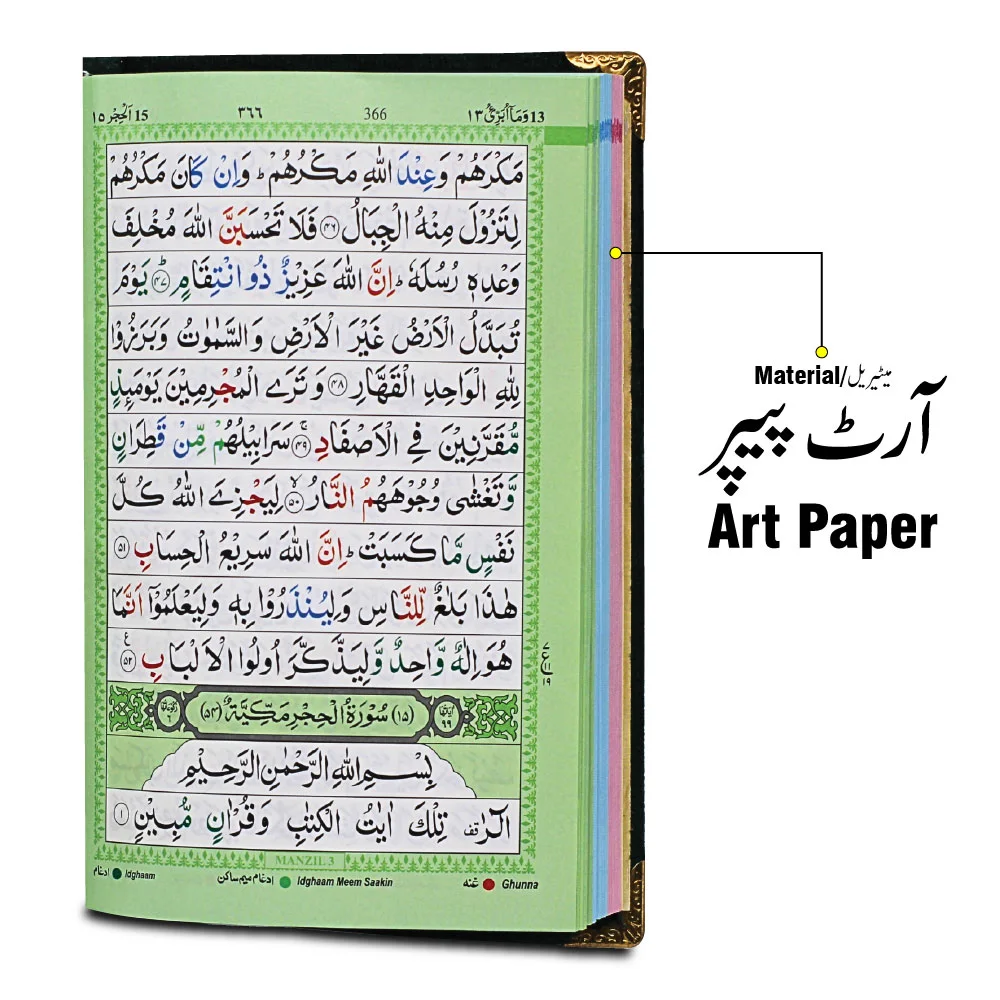 ١٥ اَلْحِجْر 15 ٣٦٦ 366 وَمَاۤ اُبَرِّئُ ١٣ 13
مَكْرَهُمْ وَعِنْدَ اللّٰهِ مَكْرُهُمْ ؕ وَاِنْ كَانَ مَكْرُهُمْ
لِتَزُوْلَ مِنْهُ الْجِبَالُ ﴿۴۶﴾ فَلَا تَحْسَبَنَّ اللّٰهَ مُخْلِفَ
وَعْدِهٖ رُسُلَهٗ ؕ اِنَّ اللّٰهَ عَزِيْزٌ ذُو انْتِقَامٍ ﴿۴۷﴾ يَوْمَ
تُبَدَّلُ الْاَرْضُ غَيْرَ الْاَرْضِ وَالسَّمٰوٰتُ وَبَرَزُوْا
لِلّٰهِ الْوَاحِدِ الْقَهَّارِ ﴿۴۸﴾ وَتَرَى الْمُجْرِمِيْنَ يَوْمَئِذٍ
مُّقَرَّنِيْنَ فِي الْاَصْفَادِ ﴿۴۹﴾ سَرَابِيْلُهُمْ مِّنْ قَطِرَانٍ
وَّتَغْشٰى وُجُوْهَهُمُ النَّارُ ﴿۵۰﴾ لِيَجْزِيَ اللّٰهُ كُلَّ
نَفْسٍ مَّا كَسَبَتْ ؕ اِنَّ اللّٰهَ سَرِيْعُ الْحِسَابِ ﴿۵۱﴾
هٰذَا بَلٰغٌ لِّلنَّاسِ وَلِيُنْذَرُوْا بِهٖ وَلِيَعْلَمُوْۤا اَنَّمَا
هُوَ اِلٰهٌ وَّاحِدٌ وَّلِيَذَّكَّرَ اُولُوا الْاَلْبَابِ ﴿۵۲﴾
ع ٧ ١١ ١٩
اٰيَاتُهَا ٩٩ (١٥) سُوْرَةُ الْحِجْرِ مَكِّيَّةٌ (٥٤) رُكُوْعَاتُهَا ٦
بِسْمِ اللّٰهِ الرَّحْمٰنِ الرَّحِيْمِ
الٓرٰ تِلْكَ اٰيٰتُ الْكِتٰبِ وَقُرْاٰنٍ مُّبِيْنٍ ﴿۱﴾
MANZIL 3
ادغام Idghaam ادغام میم ساکن Idghaam Meem Saakin غنه Ghunna
Material/میٹیریل
آرٹ پیپر
Art Paper